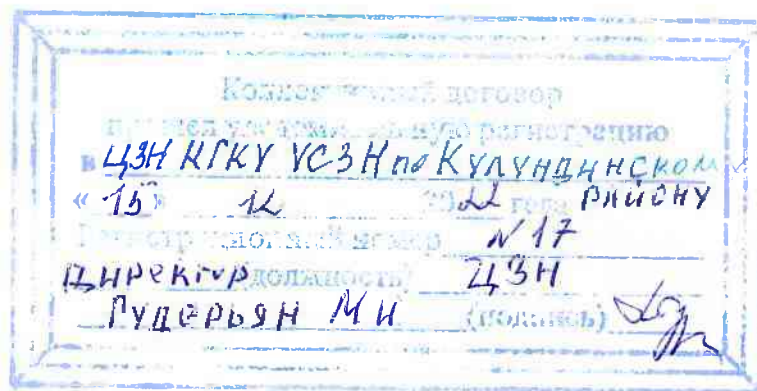 Коллективный договор
прошел уведомительную регистрацию
в ЦЗН КГКУ УСЗН по Кулундинскому
«15» 12 2022 года району
Регистрационный номер N 17
Директор (должность) ЦЗН
Гудерьян М И (подпись)